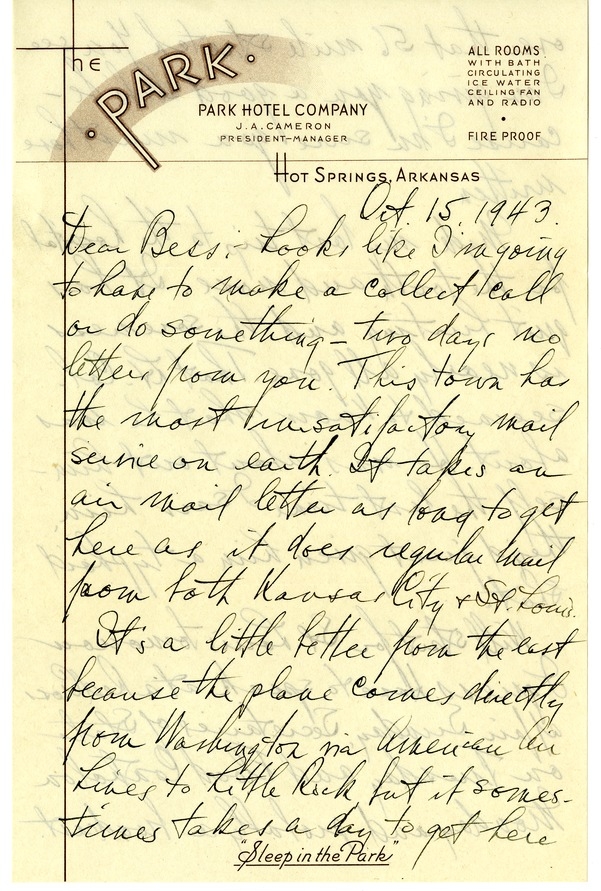 The PARK
PARK HOTEL COMPANY
J. A. CAMERON
PRESIDENT-MANAGER
ALL ROOMS
WITH BATH
CIRCULATING
ICE WATER
CEILING FAN
AND RADIO
•
FIRE PROOF
HOT SPRINGS, ARKANSAS
Oct. 15, 1943.
Dear Bess:- Looks like I'm going
to have to make a collect call
or do something - two days no
letter from you. This town has
the most unsatisfactory mail
service on earth. It takes an
air mail letter as long to get
here as it does regular mail
from both Kansas City & St. Louis.
It's a little better from the east
because the plane comes directly
from Washington via American Air
Lines to Little Rock but it some-
times takes a day to get here
"Sleep in the Park"